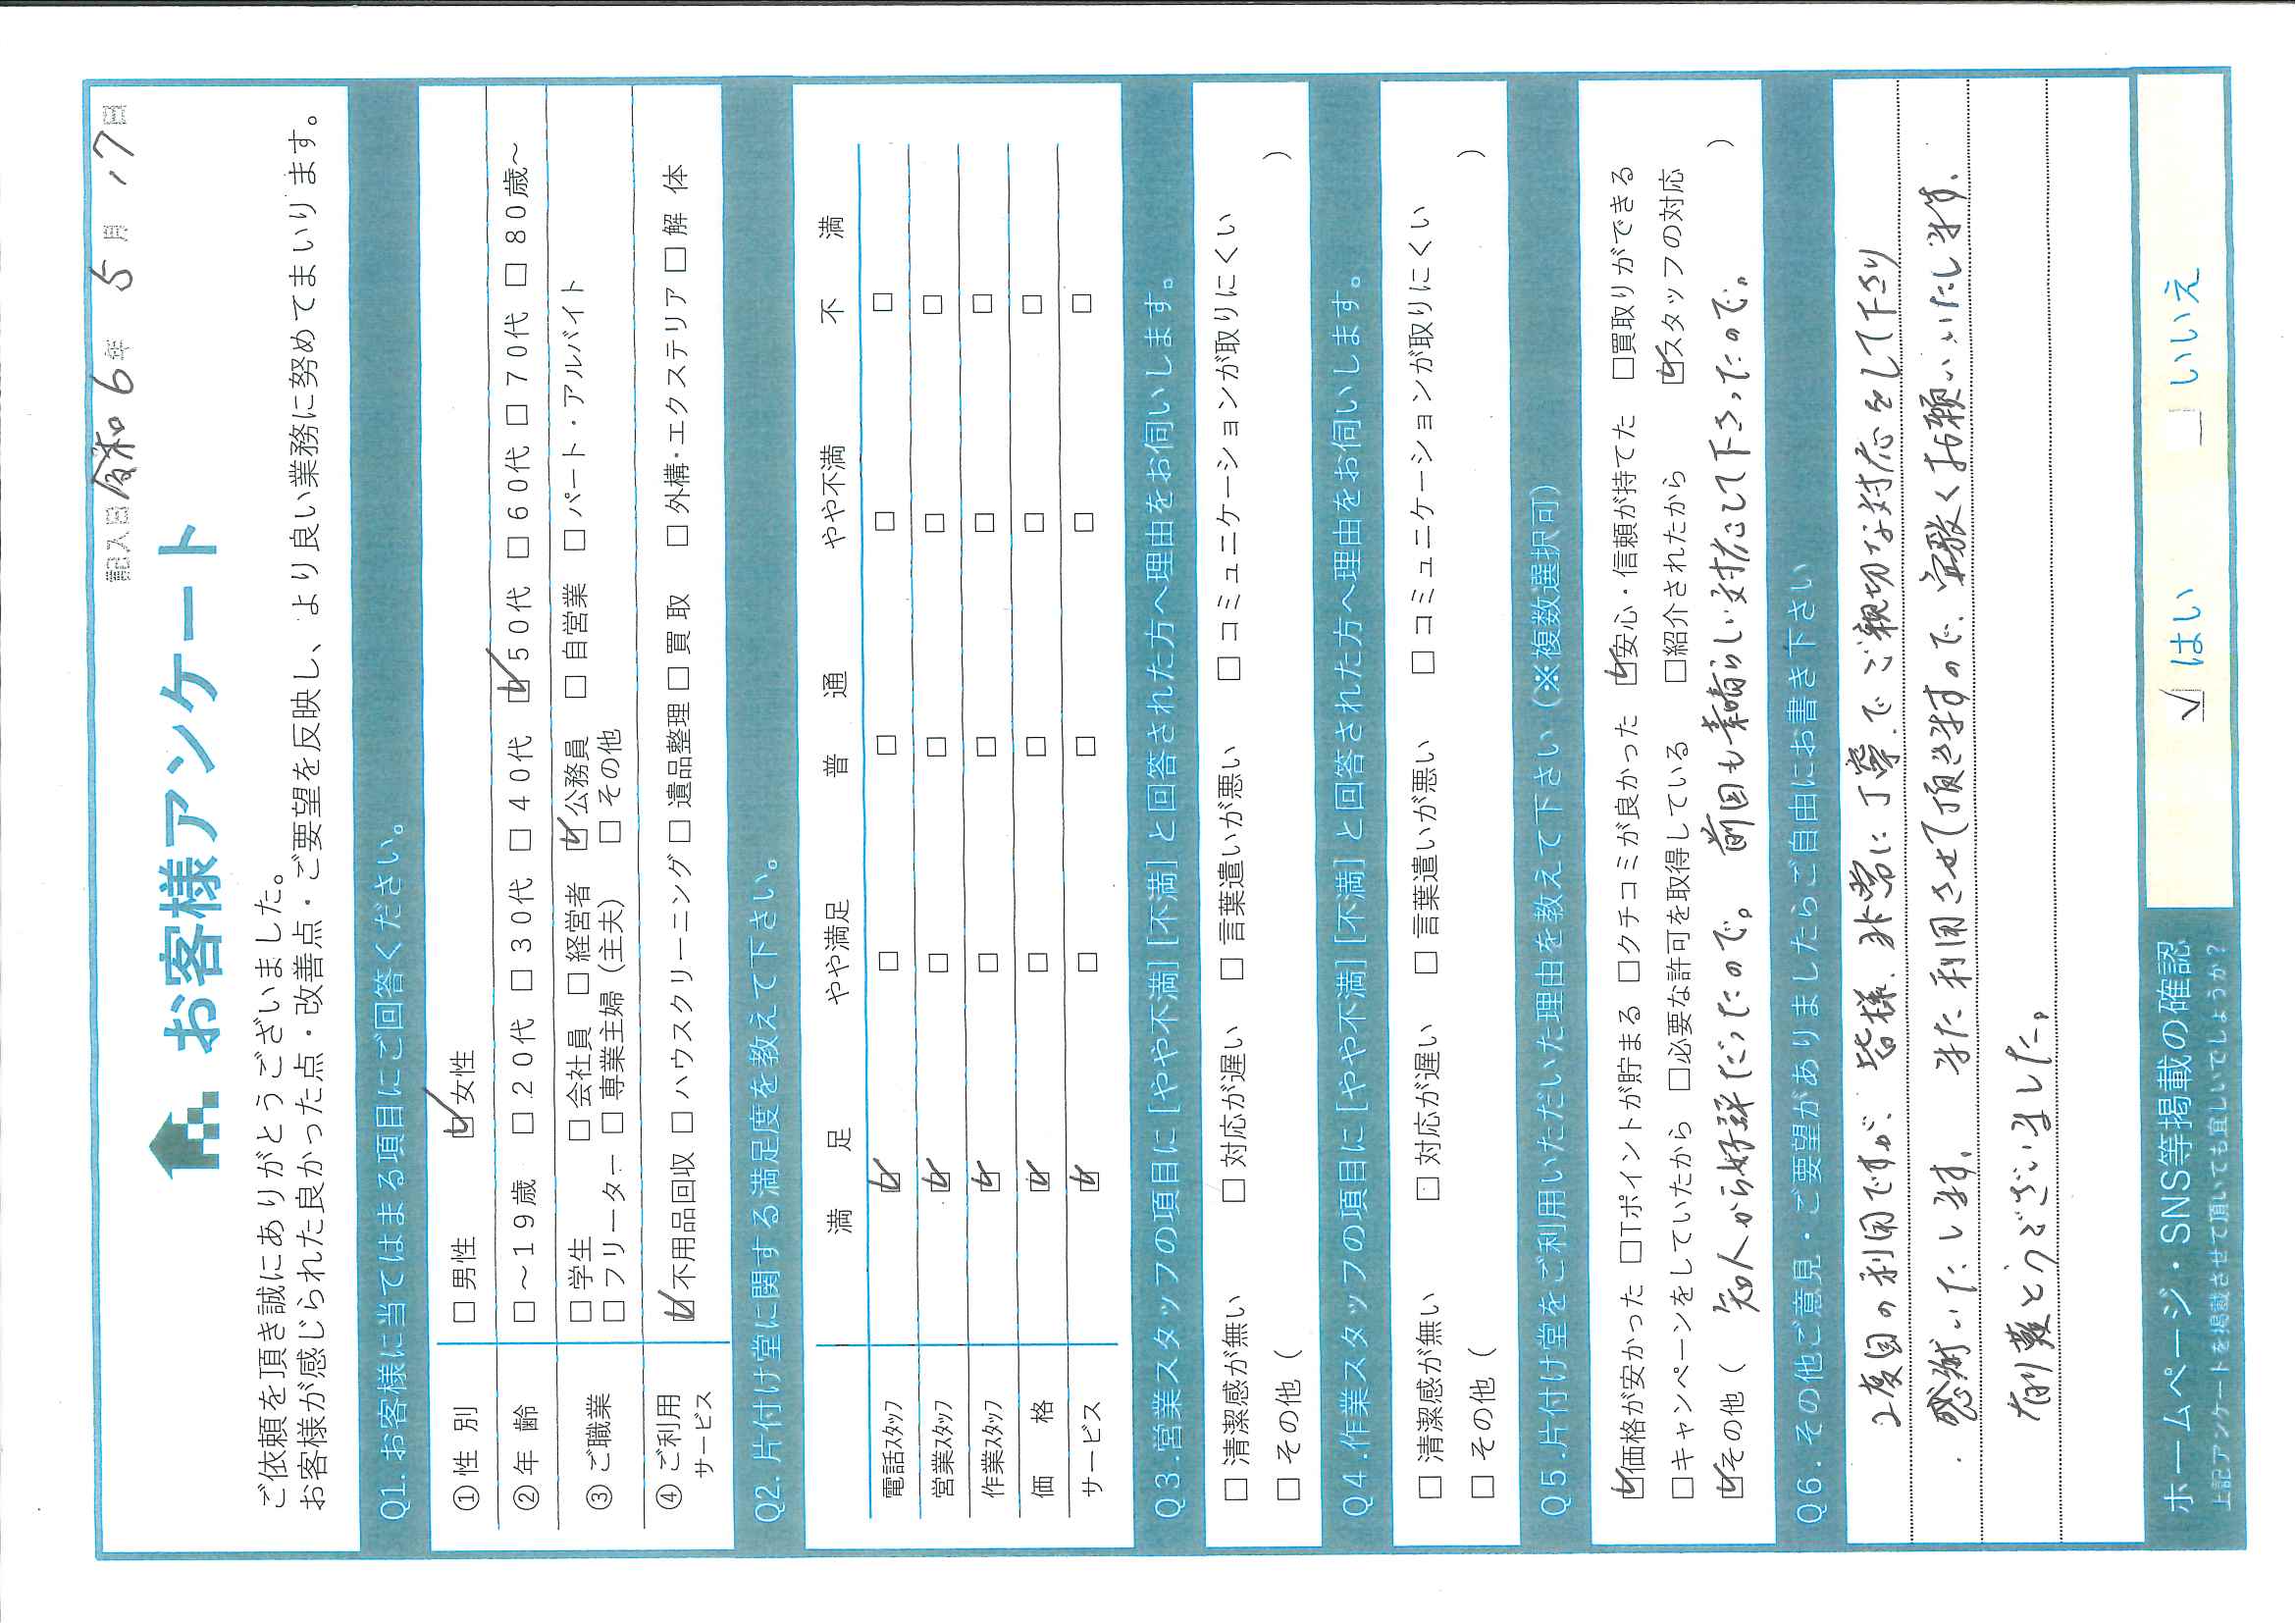 記入日 令和6年 5月 17日
お客様アンケート
ご依頼を頂き誠にありがとうございました。
お客様が感じられた良かった点・改善点・ご要望を反映し、より良い業務に努めてまいります。
Q1.お客様に当てはまる項目にご回答ください。
①性 別 □男性 ☑女性
②年 齢 □~19歳 □20代 □30代 □40代 ☑50代 □60代 □70代 □80歳~
③ご職業 □学生 □会社員 □経営者 ☑公務員 □自営業 □パート・アルバイト
□フリーター □専業主婦(主夫) □その他
④ご利用サービス ☑不用品回収 □ハウスクリーニング □遺品整理 □買 取 □外構・エクステリア □解 体
Q2.片付け堂に関する満足度を教えて下さい。
満 足 やや満足 普 通 やや不満 不 満
電話スタッフ ☑ □ □ □ □
営業スタッフ ☑ □ □ □ □
作業スタッフ ☑ □ □ □ □
価 格 ☑ □ □ □ □
サービス ☑ □ □ □ □
Q3.営業スタッフの項目に[やや不満][不満]と回答された方へ理由をお伺いします。
□清潔感が無い □対応が遅い □言葉遣いが悪い □コミュニケーションが取りにくい
□その他( )
Q4.作業スタッフの項目に[やや不満][不満]と回答された方へ理由をお伺いします。
□清潔感が無い □対応が遅い □言葉遣いが悪い □コミュニケーションが取りにくい
□その他( )
Q5.片付け堂をご利用いただいた理由を教えて下さい(※複数選択可)
☑価格が安かった □Tポイントが貯まる □クチコミが良かった ☑安心・信頼が持てた □買取りができる
□キャンペーンをしていたから □必要な許可を取得している □紹介されたから ☑スタッフの対応
☑その他( 知人から好評だったので。前回も素晴らしい対応して下さったので。 )
Q6.その他ご意見・ご要望がありましたらご自由にお書き下さい
2度目の利用ですが、皆様、非常に丁寧で、ご親切な対応をして下さり
感謝いたします。また利用させて頂きますので、宜敷くお願いいたします。
有難とうございました。
ホームページ・SNS等掲載の確認 ☑はい □いいえ
上記アンケートを掲載させて頂いても宜しいでしょうか?